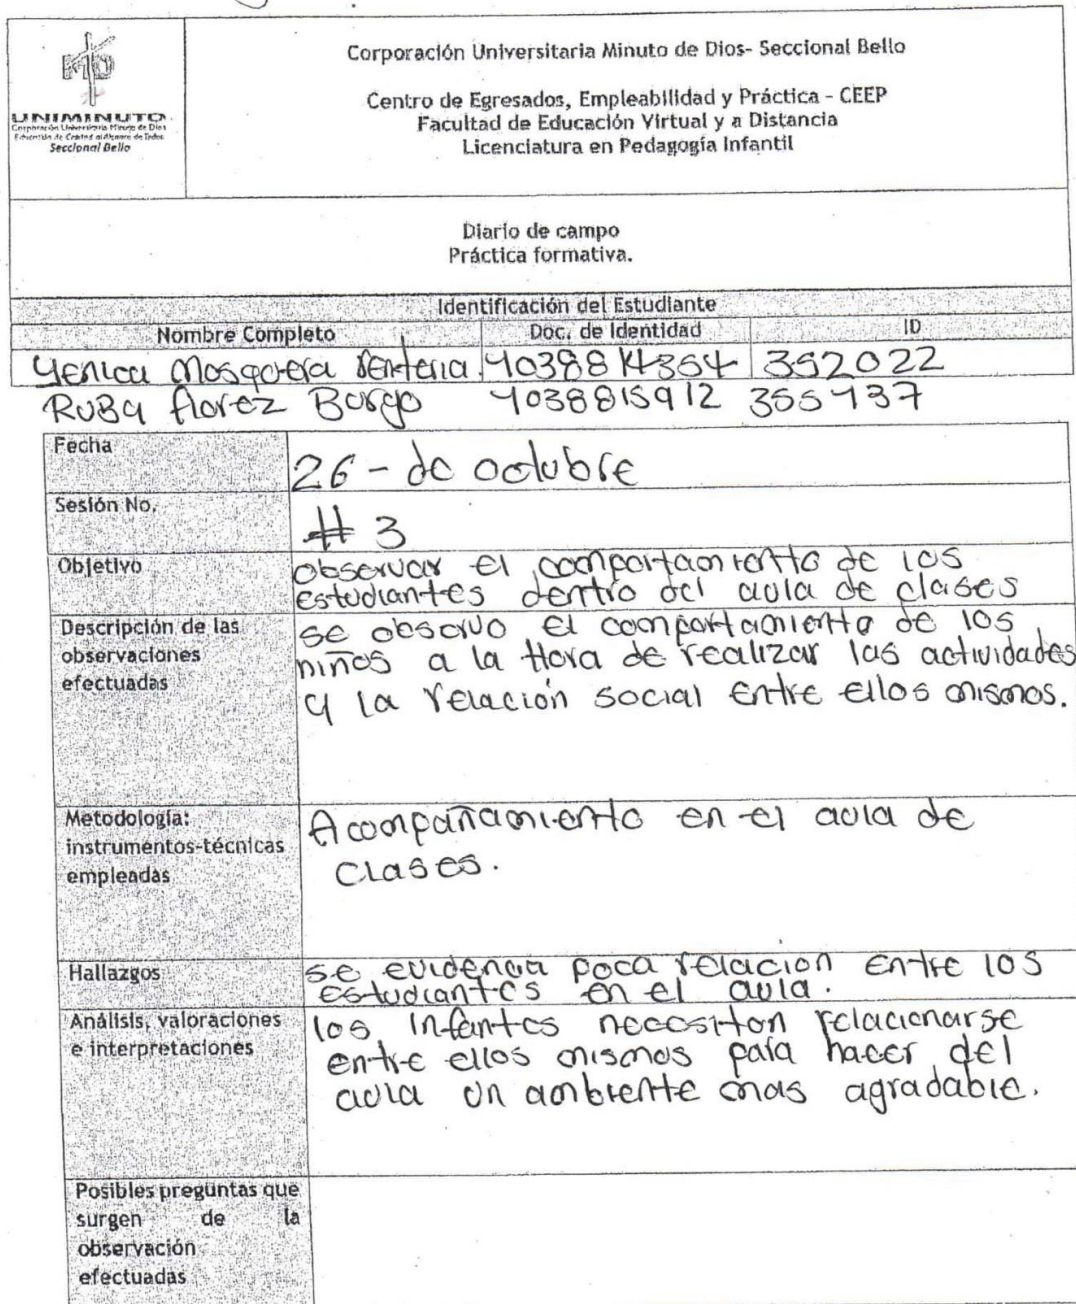 UNIMINUTO
Corporación Universitaria Minuto de Dios
Educación de Calidad al Alcance de Todos
Seccional Bello
Corporación Universitaria Minuto de Dios- Seccional Bello
Centro de Egresados, Empleabilidad y Práctica - CEEP
Facultad de Educación Virtual y a Distancia
Licenciatura en Pedagogía Infantil
Diario de campo
Práctica formativa.
Identificación del Estudiante
Nombre Completo Doc. de Identidad ID
Yenica Mosquera Renteria 352022
Ruba florez Burgo 1038815912 355137
Fecha
26 - de octubre
Sesión No.
# 3
Objetivo
observar el comportamiento de los
estudiantes dentro del aula de clases
Descripción de las
observaciones
efectuadas
se observo el comportamiento de los
niños a la Hora de realizar las actividades
y la relación social entre ellos mismos.
Metodología:
instrumentos-técnicas
empleadas
Acompañamiento en el aula de
clases.
Hallazgos
se evidencia poca relacion entre los
estudiantes en el aula.
Análisis, valoraciones
e interpretaciones
los infantes necesiton relacionarse
entre ellos mismos para hacer del
aula un ambiente mas agradable.
Posibles preguntas que
surgen de la
observación
efectuadas